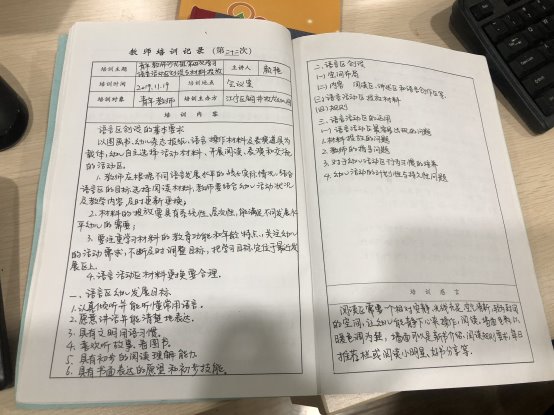 教师培训记录（第二十二次）
培训主题
青年教师沙龙组第四次学习
语言活动区创设与材料投放
主讲人
顾艳
培训时间
2019.11.19
培训地点
会议室
培训对象
青年教师
培训主办方
培训内容
语言区创设的基本要求
以图画书、幼儿表达模板、语言操作材料及表演道具为
载体，幼儿自主选择活动材料，开展阅读、表演和交流
的活动区。
1. 教师应根据不同发展水平的幼儿实际情况，结合
语言区的目标选择阅读材料，教师要结合幼儿活动状况
及教学内容及时更新更换；
2. 材料的投放需具有系统性、层次性，能满足不同发展水
平幼儿的需要；
3. 要注重学习材料的教育功能和年龄特点，关注幼儿
的活动需求，不断及时调整目标，把学习目标定位于最近发
展区上。
4. 语言活动区材料更换要合理。
一、语言区幼儿发展目标
1. 认真倾听并能听懂常用语言。
2. 愿意讲话并能清楚地表达。
3. 具有文明用语习惯。
4. 喜欢听故事、看图书。
5. 具有初步的阅读理解能力。
6. 具有书面表达的愿望和初步技能。
二、语言区创设
(一) 空间布局
(二) 内容 阅读区、讲述区和语言创作区等
(三) 语言活动区投放材料
(四) 规则
三、语言活动区的运用
(一) 语言活动区最容易出现的问题
1. 材料投放的问题
2. 教师的指导问题
3. 对于幼儿活动区行为习惯的培养
4. 幼儿活动的计划性与持久性问题
培训感言
阅读区需要一个相对安静、光线充足、空气清新、
的空间，让幼儿能静下心来操作，阅读。墙面色系以
暖色调为主，墙面可以是新书介绍、阅读规则、每日
推荐栏或阅读小明星、好书分享等。